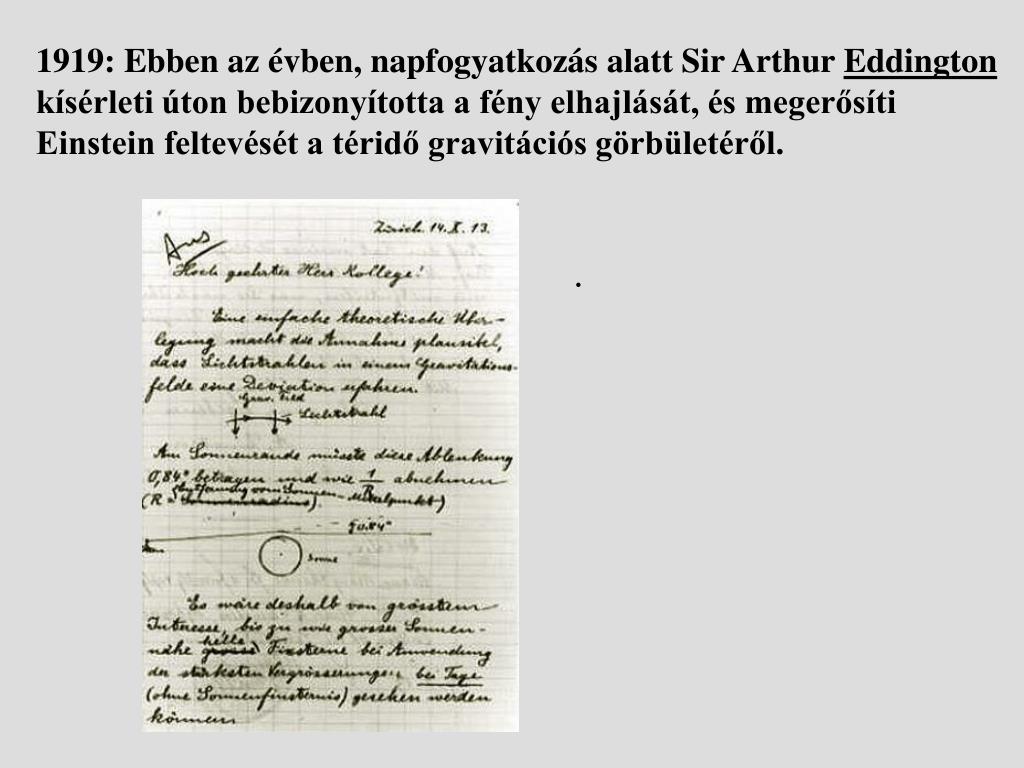 1919: Ebben az évben, napfogyatkozás alatt Sir Arthur Eddington
kísérleti úton bebizonyította a fény elhajlását, és megerősíti
Einstein feltevését a téridő gravitációs görbületéről.
.
Zürich. 14. X. 13.
Hoch geehrter Herr Kollege!
Eine einfache theoretische Über-
legung macht die Annahme plausibel,
dass Lichtstrahlen in einem Gravitations-
felde eine Deviation erfahren.
Grav. Feld
Lichtstrahl
Am Sonnenrande müsste diese Ablenkung
0,84" betragen und wie 1/R abnehmen
(R = Entfernung vom Sonnen-Mittelpunkt)
0.84"
Sonne
Es wäre deshalb von grösstem
Interesse, bis zu wie grosser Sonnen-
nähe helle Fixsterne bei Anwendung
der stärksten Vergrösserungen bei Tage
(ohne Sonnenfinsternis) gesehen werden
können.